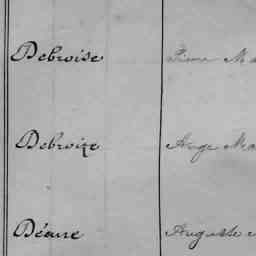 Debroise Pierre Ma
Debroize Ange Ma
Déane Auguste